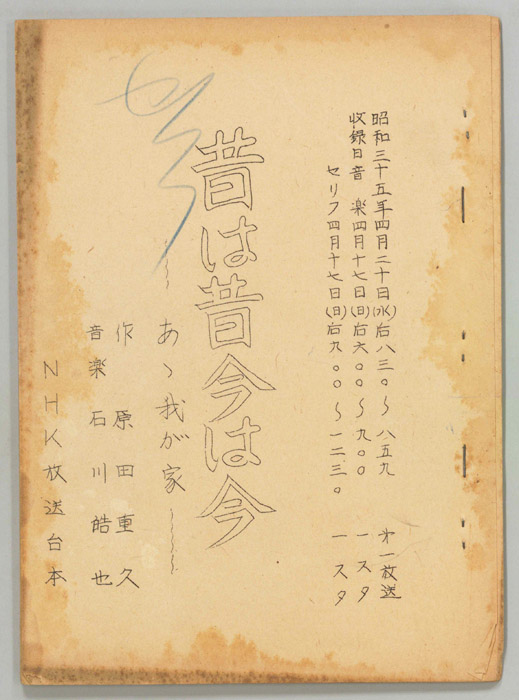 昭和三十五年四月二十日(水)后八三〇〜八五九 オ一放送
收録日音 楽四月十七日(日)后六〇〇〜九〇〇 一スタ
セリフ四月十七日(日)后九〇〇〜一二三〇 一スタ
昔は昔今は今
〜あゝ我が家〜
作 原田重久
音楽 石川皓也
NHK放送台本